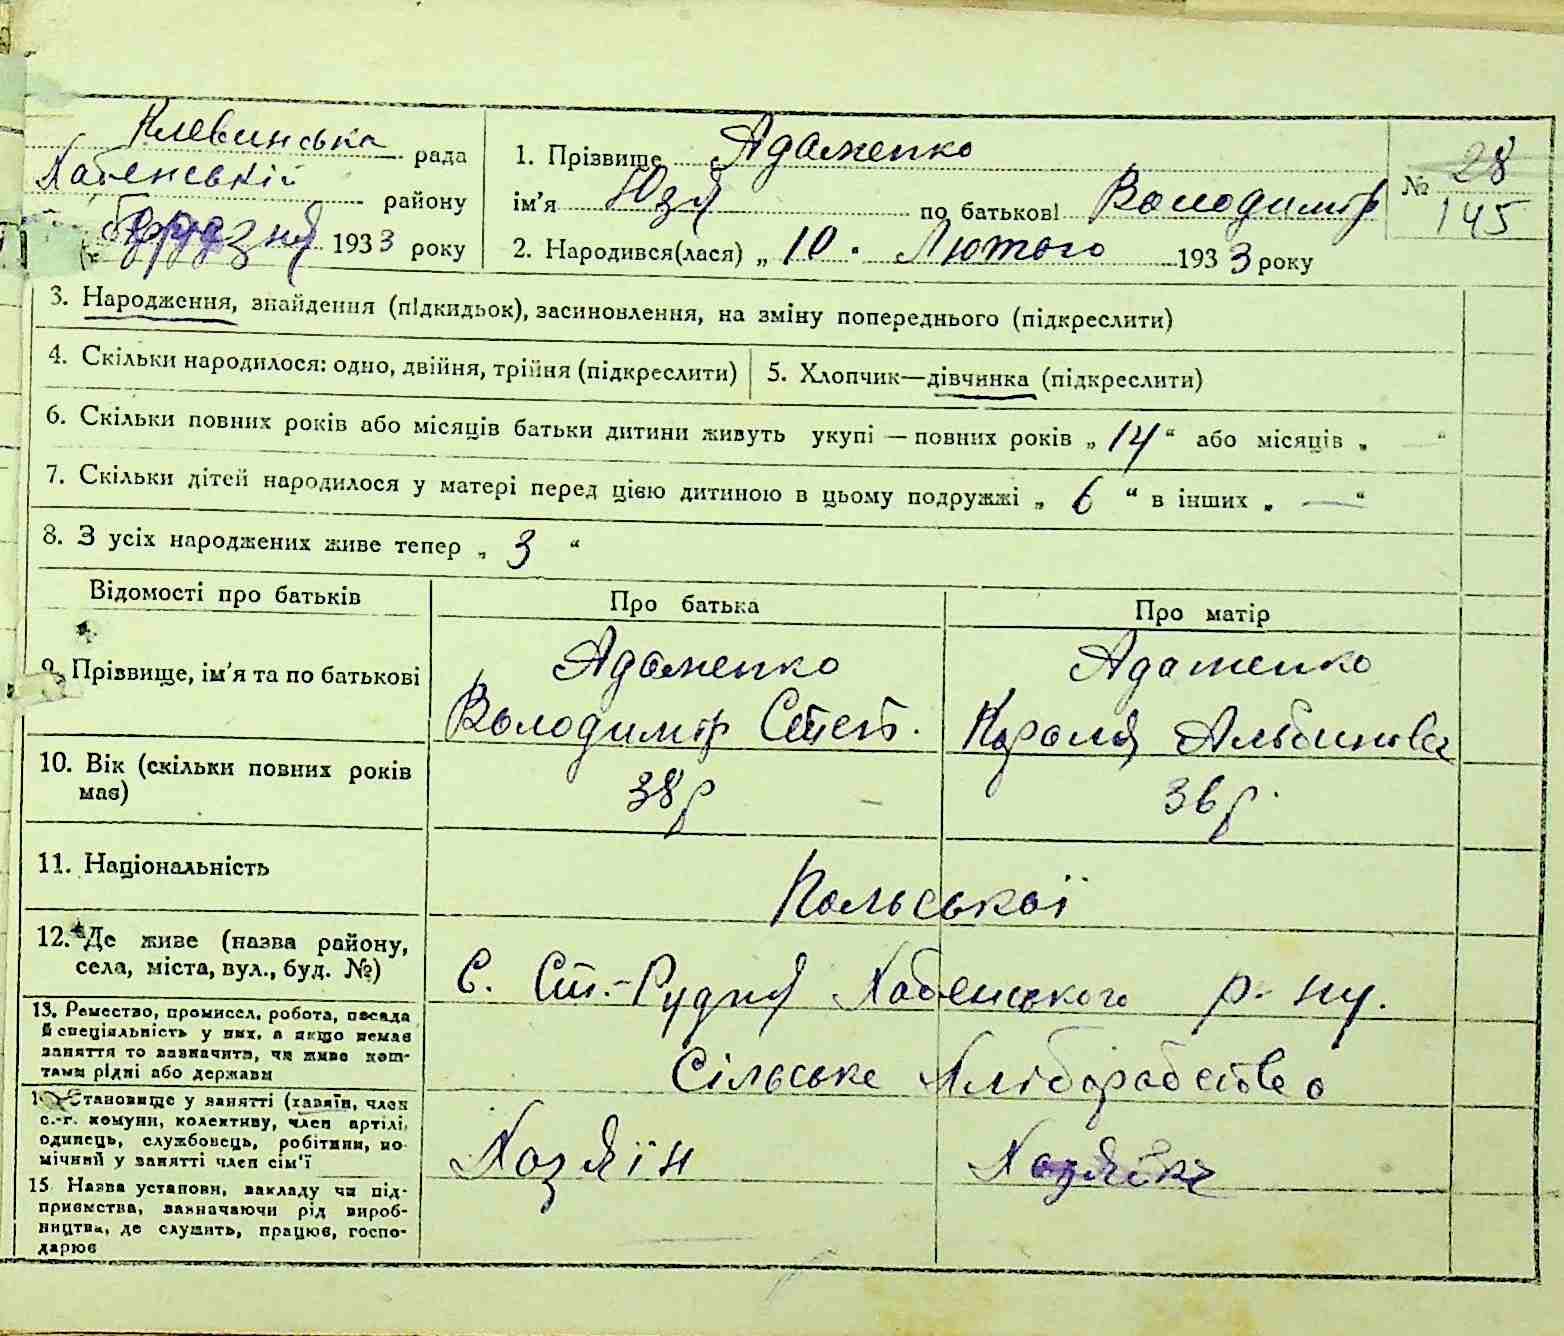 Клевинська рада
Хабенській району
1933 року
1. Прізвище Адаменко
ім'я Юзя по батькові Володимир
2. Народився(лася) „ 10 . Лютого 1933 року
№ 28
145
3. Народження, знайдення (підкидьок), засиновлення, на зміну попереднього (підкреслити)
4. Скільки народилося: одно, двійня, трійня (підкреслити)
5. Хлопчик—дівчинка (підкреслити)
6. Скільки повних років або місяців батьки дитини живуть укупі — повних років „ 14 “ або місяців „ — “
7. Скільки дітей народилося у матері перед цією дитиною в цьому подружжі „ 6 “ в інших „ — “
8. З усіх народжених живе тепер „ 3 “
Відомості про батьків
Про батька
Про матір
9. Прізвище, ім'я та по батькові
Адаменко
Володимир Степ.
Адаменко
Кароля Альбинова
10. Вік (скільки повних років
має)
38 р
36 р.
11. Національність
Польської
12. Де живе (назва району,
села, міста, вул., буд. №)
С. Ст.-Рудня Хабенського р-ну.
13. Ремество, промисел, робота, посада
й спеціяльність у них, а якщо немає
заняття то зазначити, чи живе кош-
тами рідні або держави
Сільське Хліборобство
Становище у занятті (хазяїн, член
с.-г. комуни, колективу, член артілі,
одинець, службовець, робітник, по-
мічний у занятті член сім'ї
Хозяїн
Хозяйка
15. Назва установи, закладу чи під-
приємства, зазначаючи рід вироб-
ництва, де служить, працює, госпо-
дарює